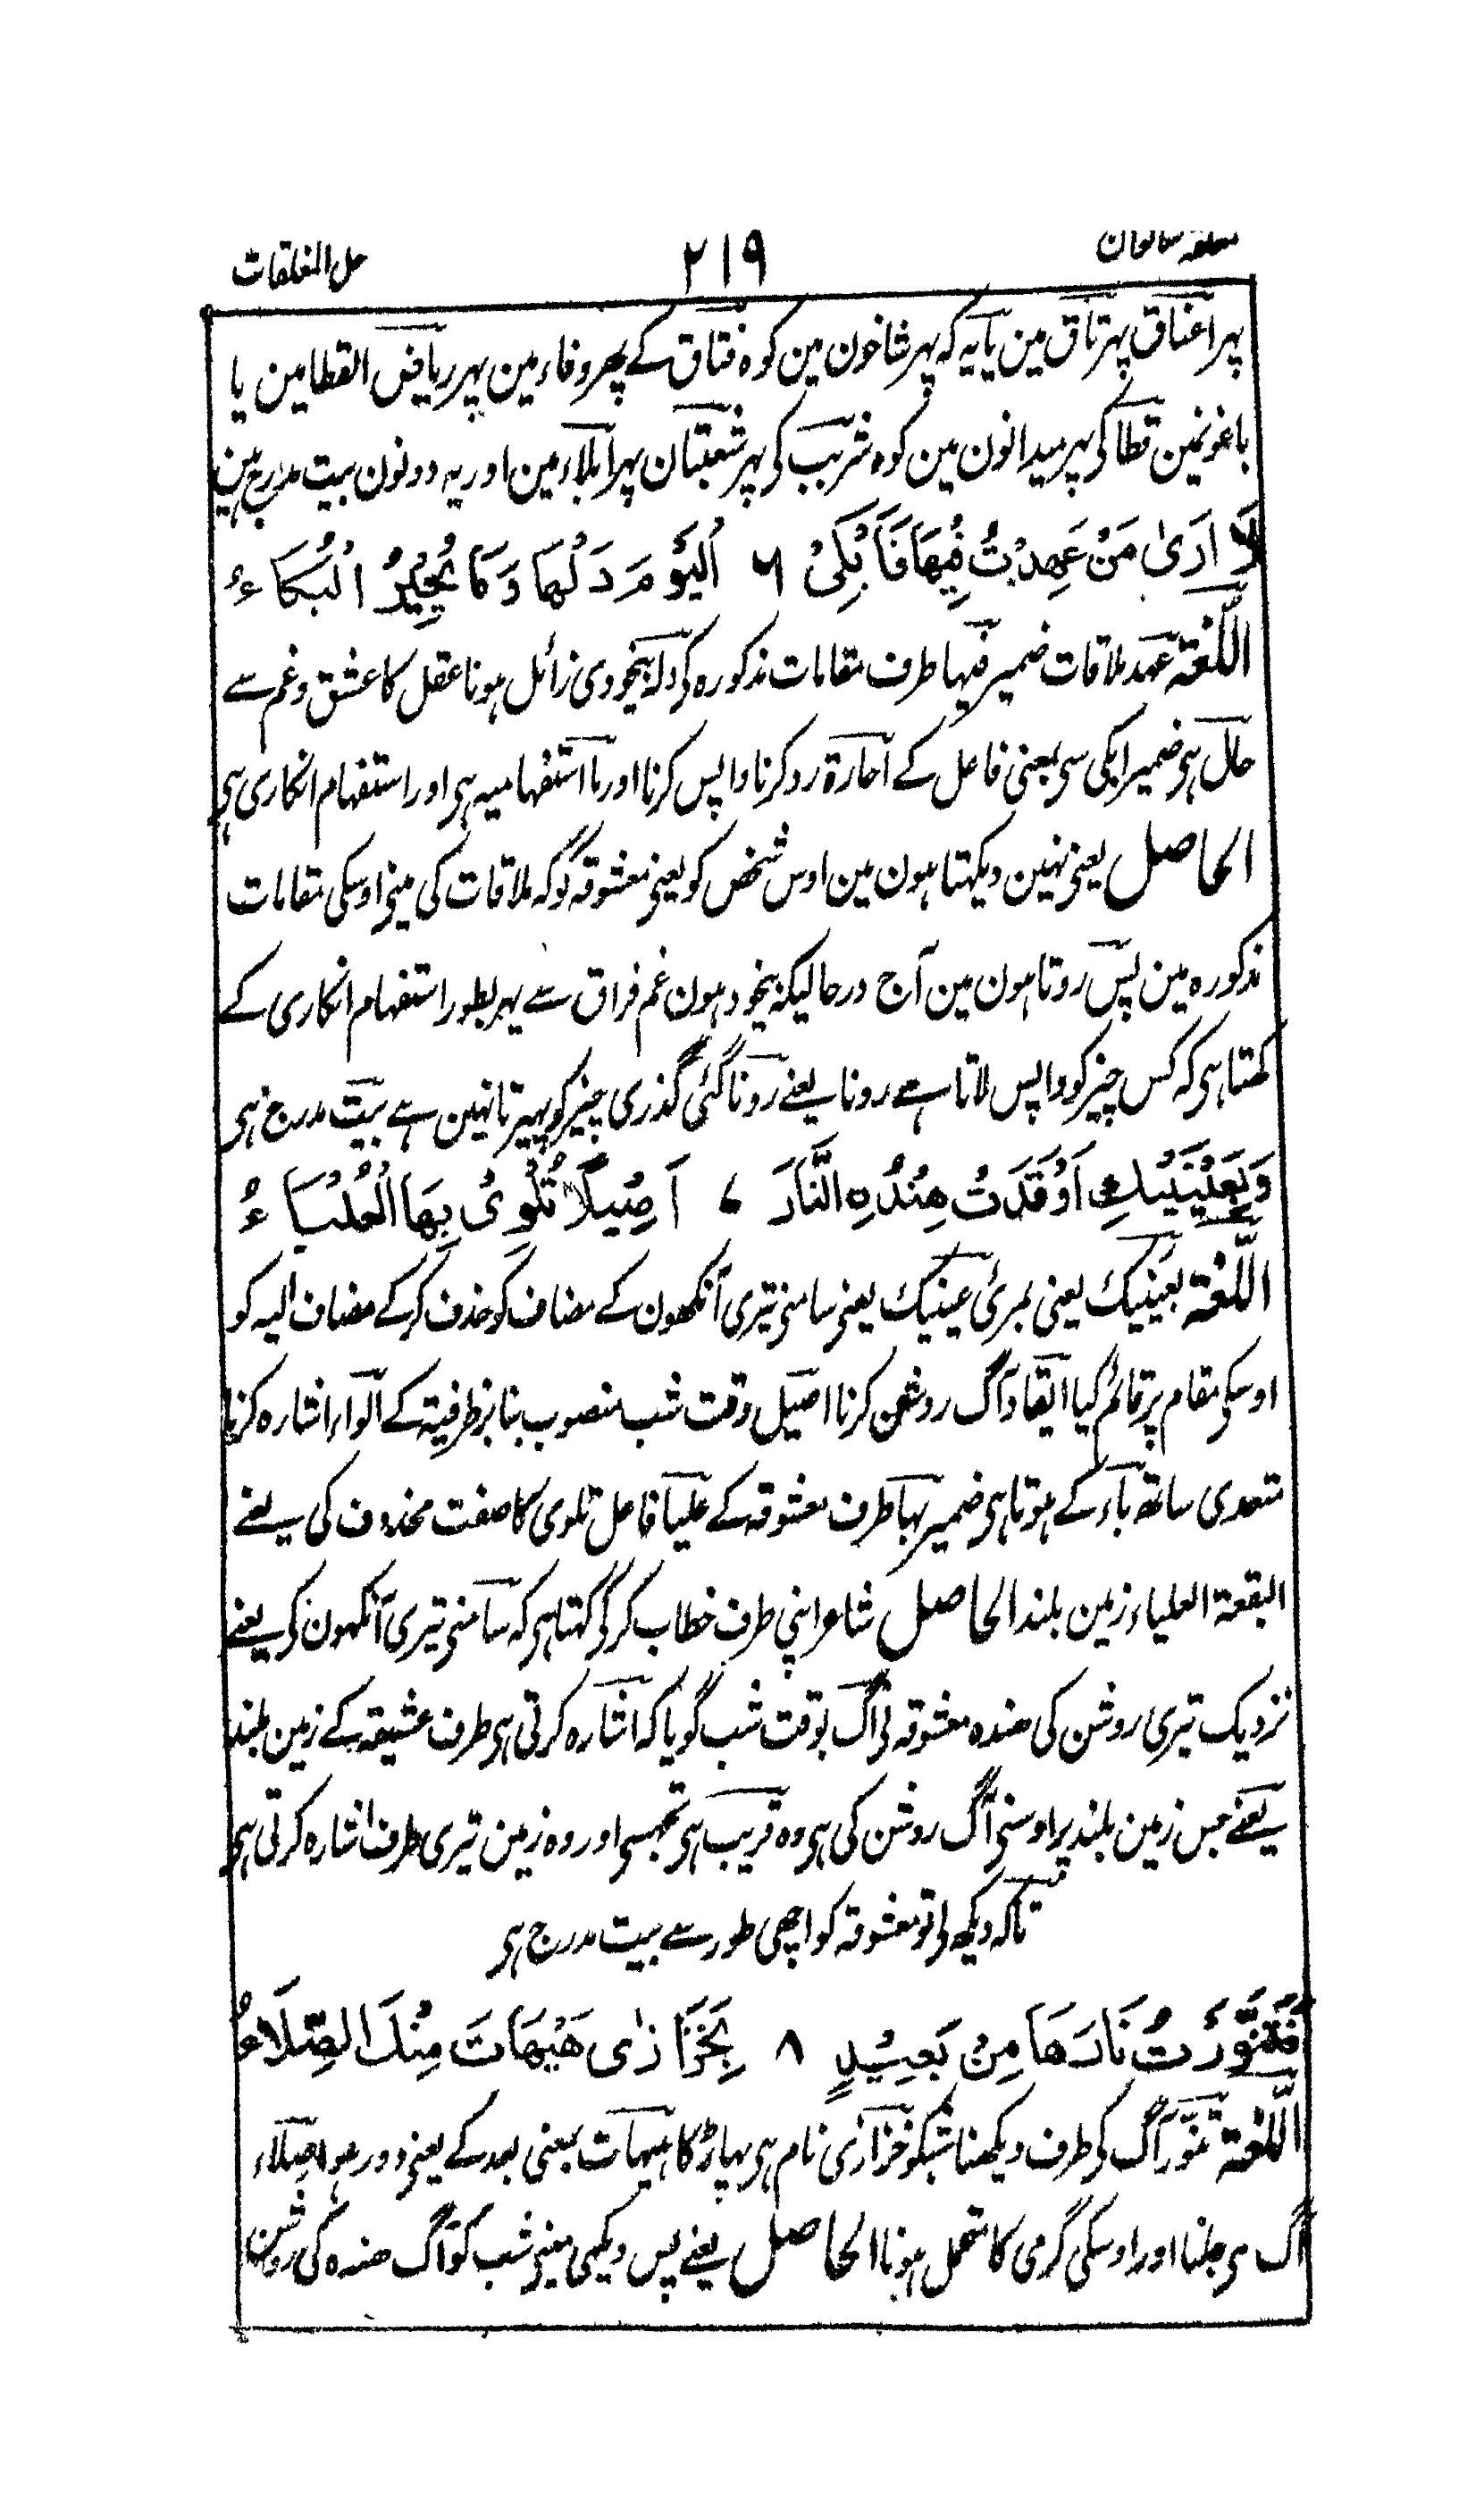 معلقہ ساتوان ۲۱۹ حل المغلقات
پہر اعناق پہر تاق مین یا یہ کہ پہر شاخون مین کوہ فتاق کے پھر وفاء مین پہر ریاض القطا مین یا
باغونمین قطا کی پہر میدانون مین کوہ شربب کی پہر شعبتان پہر ابلاء مین اور یہ دونون بیت مدرج ہین
لَا اَرَیٰ مَنْ عَهِدْتُ فِيْهَا فَاَبْكِيْ ۶ اَلْيَوْمَ دَلْهًا وَمَا يُحِيْرُ الْبُكَاءُ
اللّغۃ عہد ملاقات ضمیر فیہا طرف مقامات مذکورہ کی دلہ بیخودی زائل ہونا عقل کا عشق و غم سے
حال ہی ضمیر ابکی سی بمعنی فاعل کے احارۃ رد کرنا واپس کرنا اور ما استفہامیہ ہی اور استفہام انکاری ہی
الحاصل یعنی نہین دیکہتا ہون مین اوس شخص کو یعنی معشوقہ کو کہ ملاقات کی مینی اوسکی مقامات
مذکورہ مین پس روتا ہون مین آج درحالیکہ بیخود ہون غم فراق سے پہر بطور استفہام انکاری کے
کہتا ہی کہ کس چیز کو واپس لاتا ہے رونا یعنے رونا گئی گذری چیز کو پہیرتا نہین ہے بیت مدرج ہی
وَبِعَيْنَيْكِ اَوْقَدَتْ هِنْدُهِ النَّارَ ۷ اَصِيْلًا تُلْوِيْ بِهَا الْعُلْيَاءُ
اللّغۃ بعینیک یعنی بمرئ عینیک یعنی سامنی تیری آنکھون کے مضاف کو حذف کرکے مضاف الیہ کو
اوسکی مقام پر قائم کیا ایقاد آگ روشن کرنا اصیل وقت شب منصوب بنابر ظرفیۃ کے الواء اشارہ کرنا
متعدی ساتھ باء کے ہوتا ہی ضمیر بہا طرف معشوقہ کے علیا فاعل تلوی کا صفت محذوف کی یعنے
البقعۃ العلیاء زمین بلند الحاصل شاعر اپنی طرف خطاب کرکی کہتا ہی کہ سامنی تیری آنکہون کی یعنے
نزدیک تیری روشن کی ہندہ معشوقہ نی آگ بوقت شب گویا کہ اشارہ کرتی ہی طرف عشیقہ کے زمین بلند
یعنے جس زمین بلند پر اوسنی آگ روشن کی ہی وہ قریب ہی تجہسی اور وہ زمین تیری طرف اشارہ کرتی ہی
تاکہ دیکھ لی تو معشوقہ کو اچھی طور سے بیت مدرج ہی
فَتَنَوَّرْتُ نَارَهَا مِنْ بَعِيْدٍ ۸ بِخَزَازٰى هَيْهَاتَ مِنْكَ الصِّلَاءُ
اللّغۃ تنوّر آگ کی طرف دیکھنا شبکو خزازی نام ہی پہاڑ کا ہیہات بمعنی بعد کے یعنی دور ہوا صلاء
آگ سی جلنا اور اوسکی گرمی کا متحمل ہونا الحاصل یعنے پس دیکھی مینی شب کو آگ ہندہ کی روشن